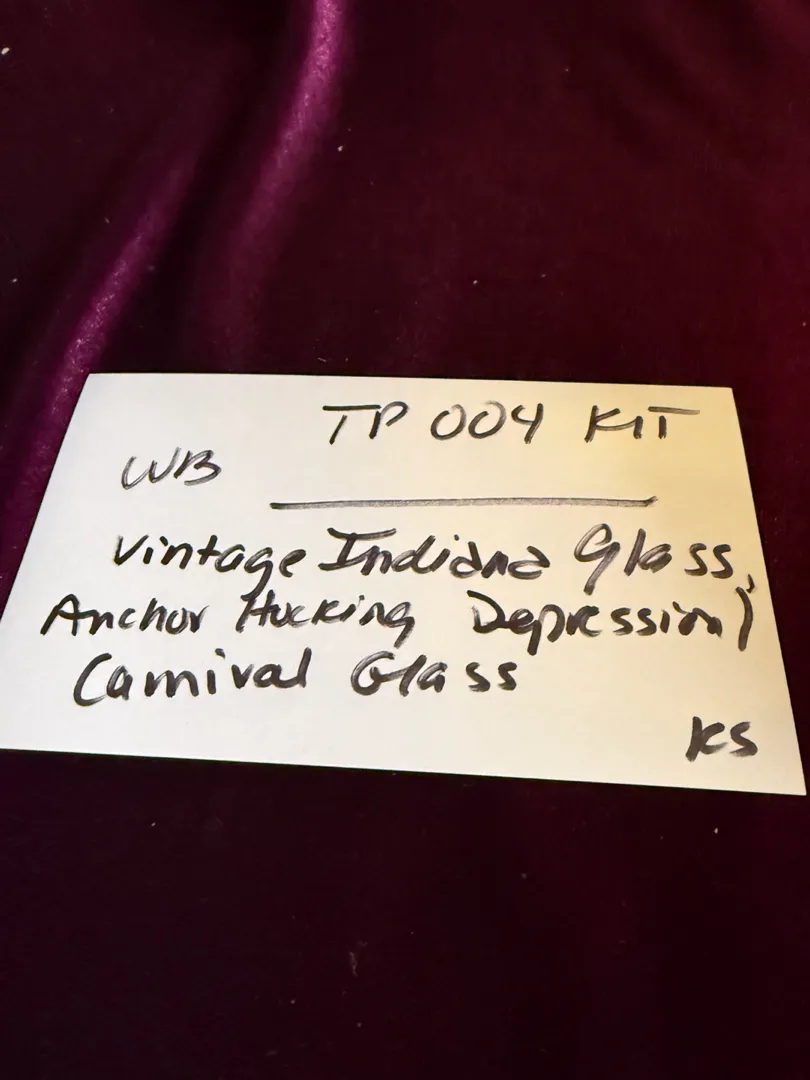 TP 004 KIT
WB
Vintage Indiana Glass,
Anchor Hocking Depression/
Carnival Glass
KS